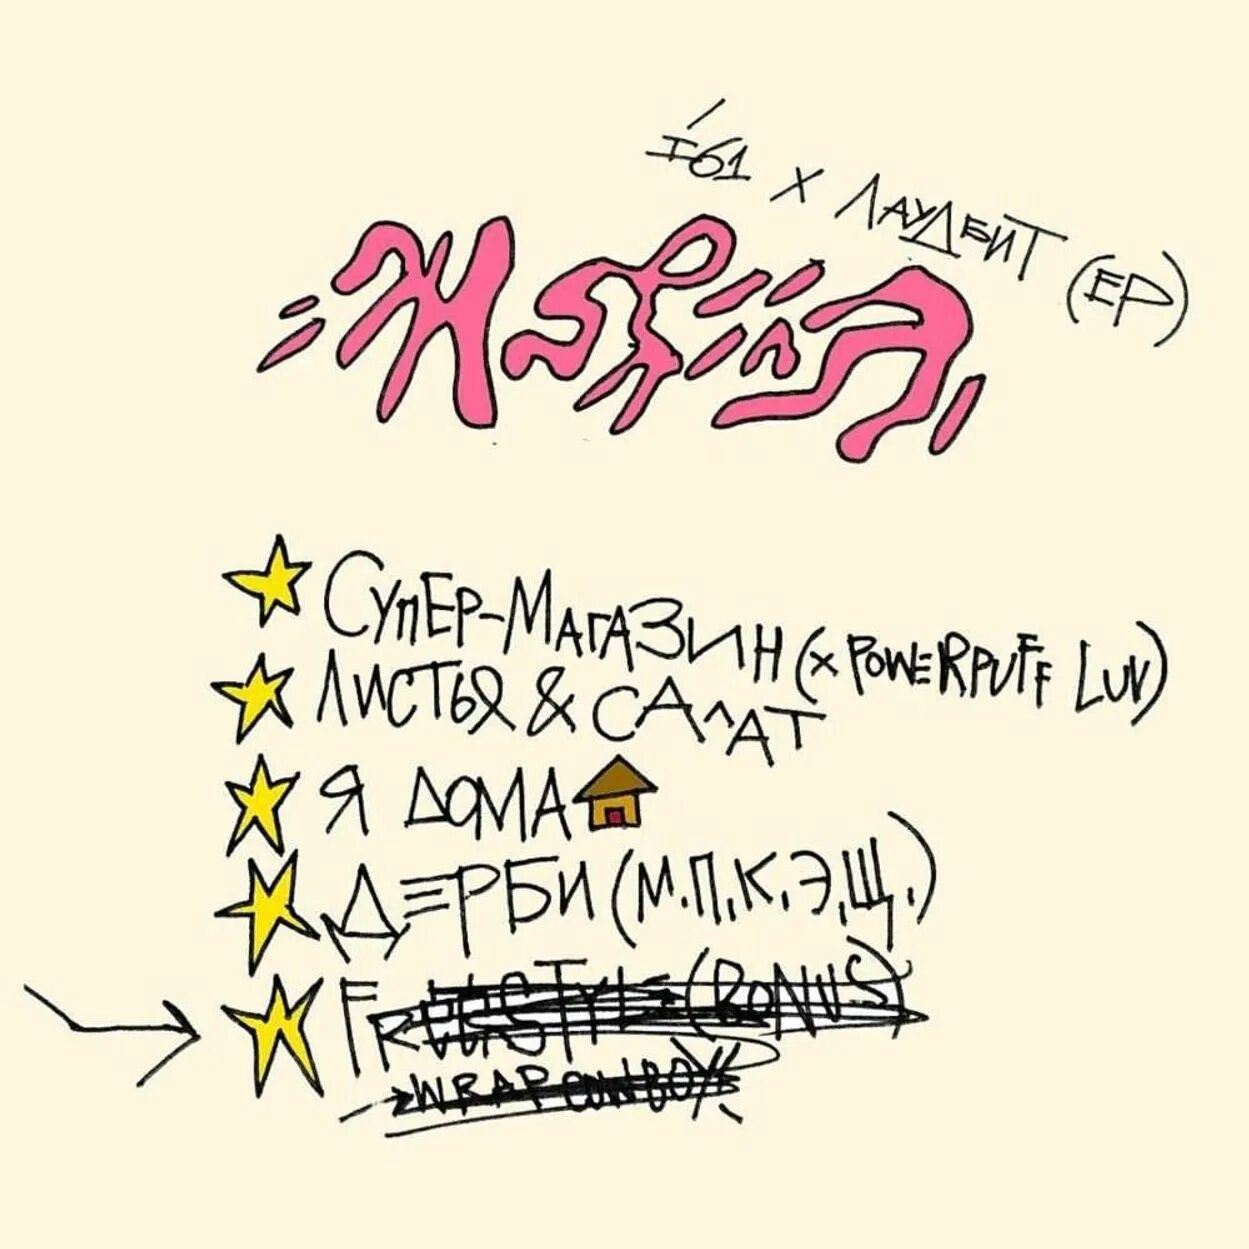 I61 X ЛАУДБИТ (EP)
СУПЕР-МАГАЗИН (x POWERPUFF LUV)
ЛИСТЬЯ & САЛАТ
Я ДОМА
ДЕРБИ (М.П.К.Э.Щ.)
FREESTYLE (BONUS)
WRAP COWBOY